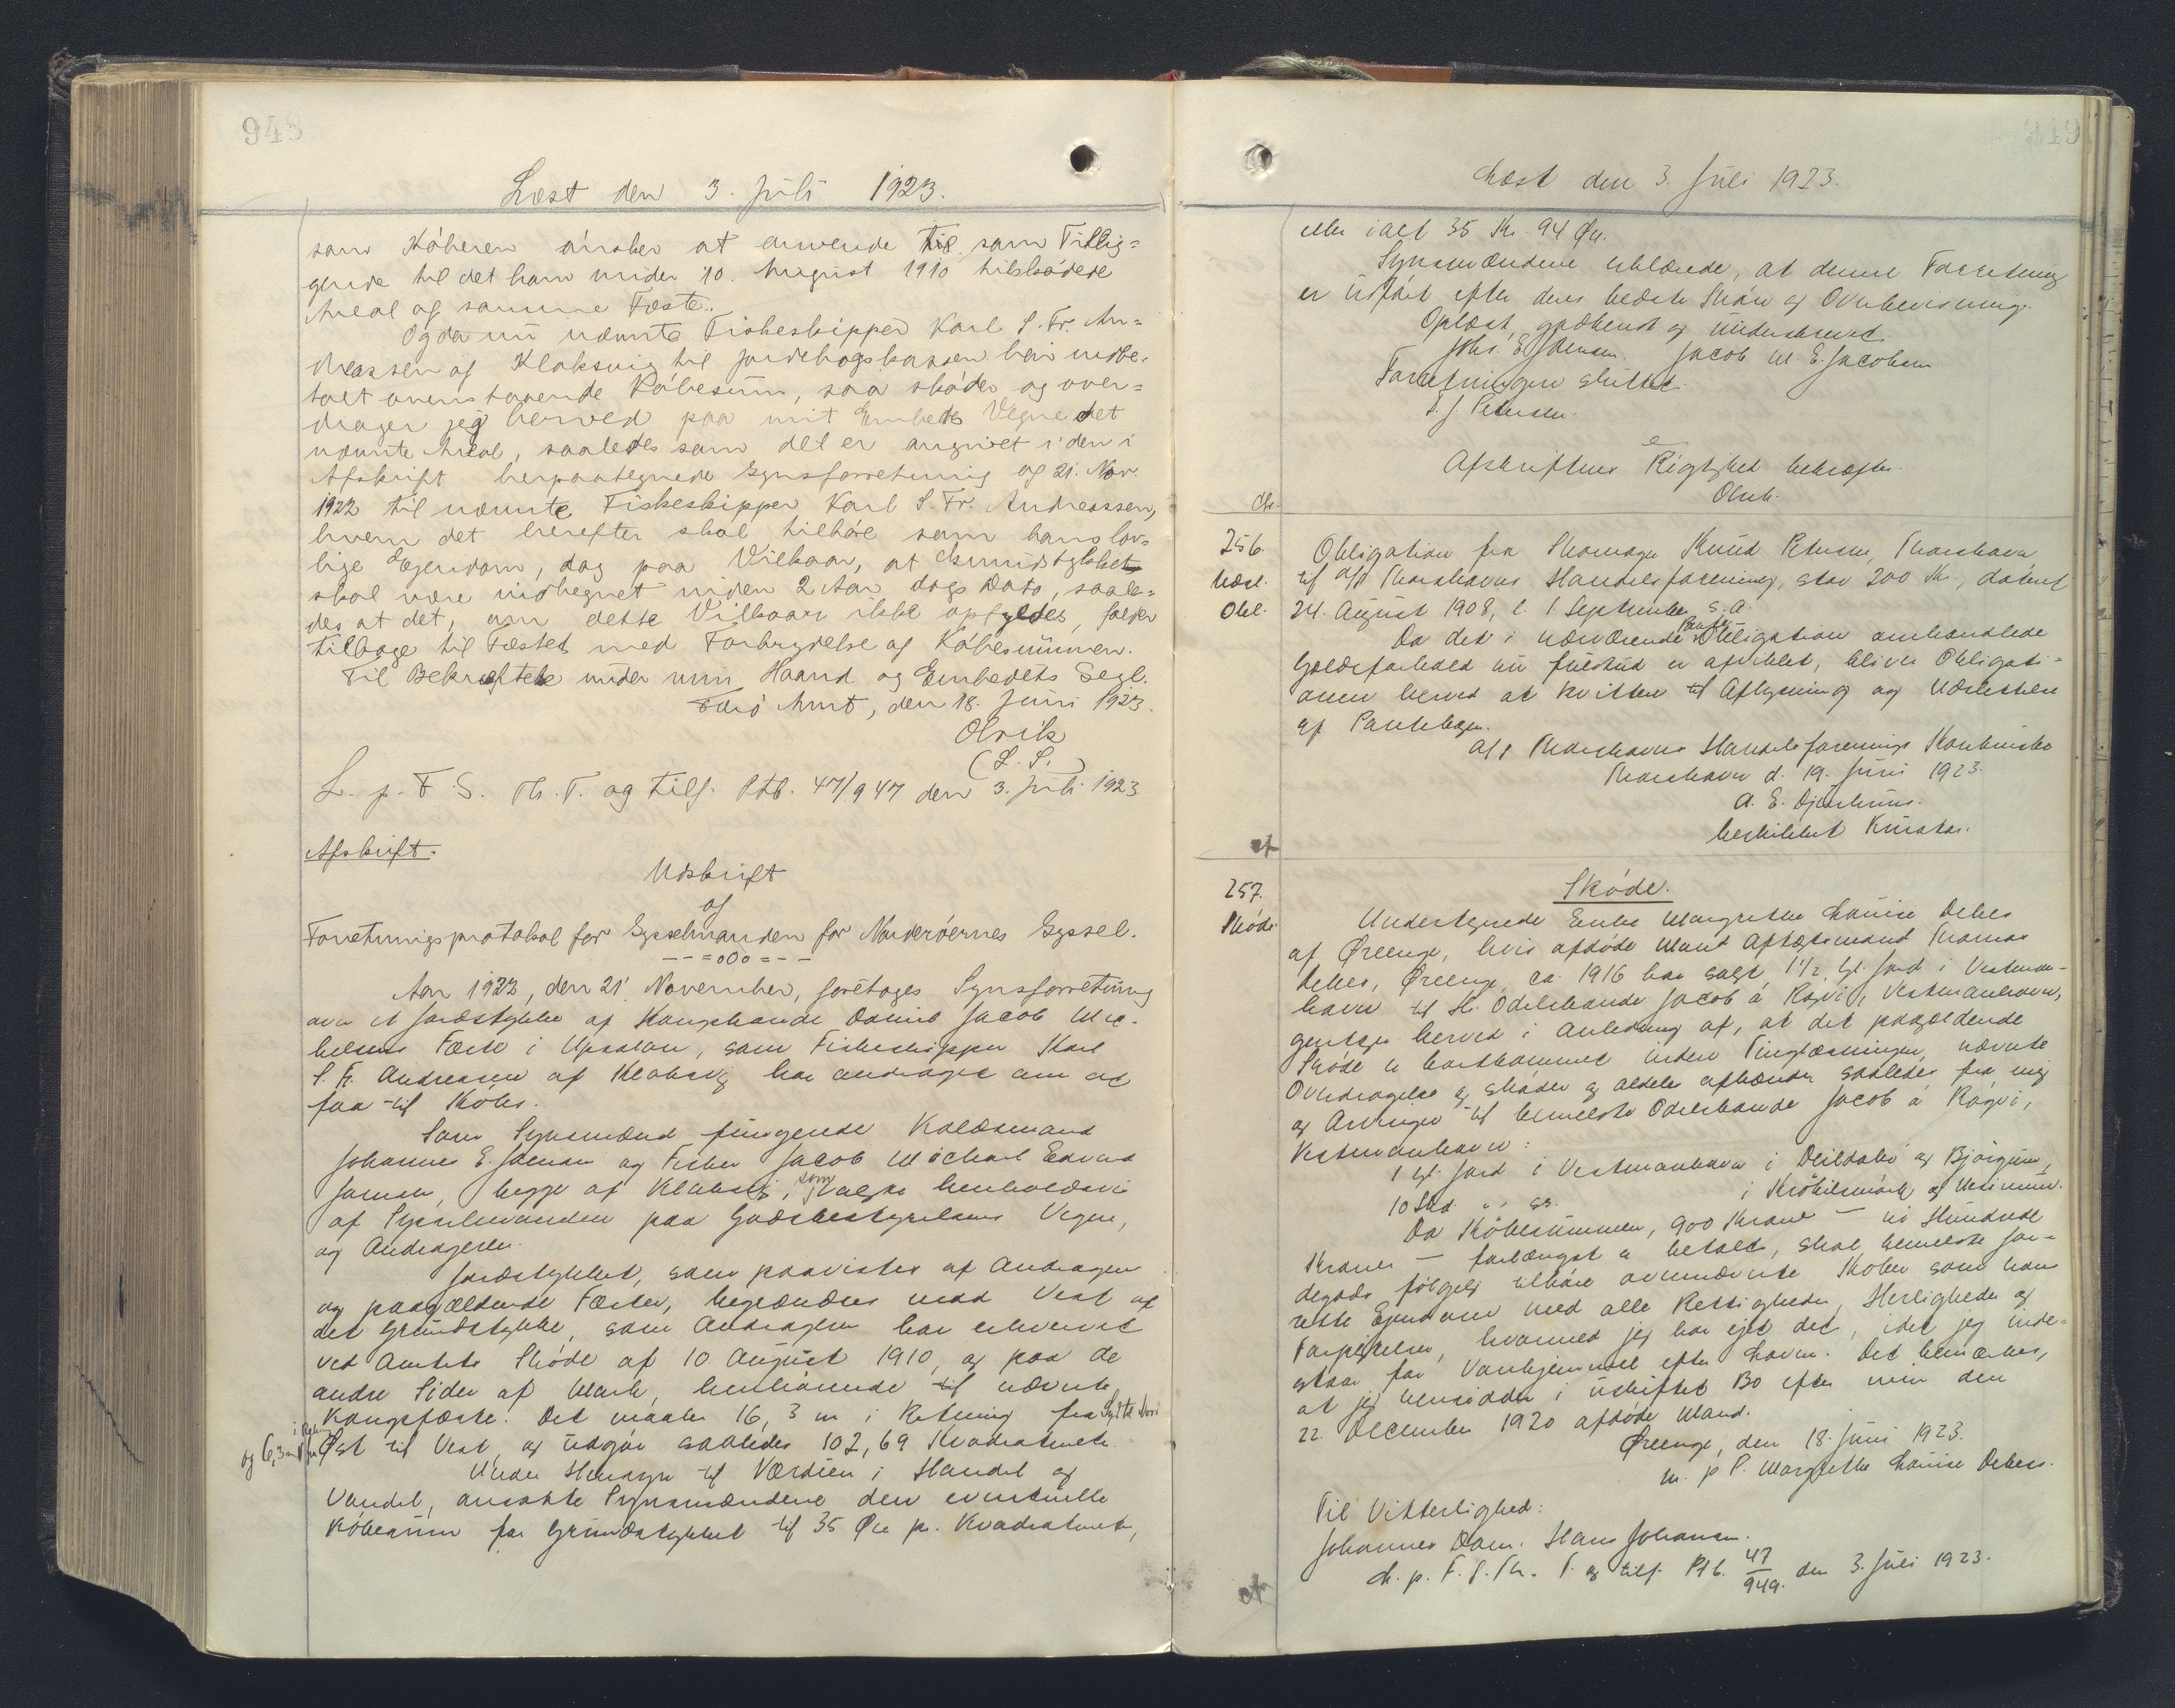 948
Læst den 3. Juli 1923.
som Köberen önsker at anvende til som Tillig=
gende til det ham under 10. August 1910 tilskødede
Areal af samme Fæste.
Og da nu nævnte Fiskeskipper Karl S. Fr. An=
dreassen af Klaksvig til Jordebogskassen har indbe-
talt ovenstaaende Købesum, saa skøder og over=
drager jeg herved paa mit Embeds Vegne det
nævnte Areal, saaledes som det er angivet i den i
Afskrift herpaategnede Synsforretning af 21. Nov.
1922 til nævnte Fiskeskipper Karl S. Fr. Andreassen,
hvem det herefter skal tilhøre som hans lov-
lige Ejendom, dog paa Vilkaar, at Grundstykket
skal være indhegnet inden 2 Aar dags Dato, saale=
des at det, om dette Vilkaar ikke opfyldes, falder
tilbage til Fæstet med Forbrydelse af Købesummen.
Til Bekræftelse under min Haand og Embedets Segl.
Færö Amt, den 18. Juni 1923.
Olrik
(L. S.)
L. p. F. S. Th. T. og tilf. Ptb. 47/947 den 3. Juli 1923
Afskrift.
Udskrift
af
Forretningsprotokol for Sysselmanden for Norderøernes Syssel.
--=o0o=--
Aar 1922, den 21. November, foretoges Synsforretning
over et Jordstykke af Kongsbonde Daniel Jacob Mic-
kelsens Fæste i Uppsalon, som Fiskeskipper Karl
S. Fr. Andreassen af Klaksvig har andraget om at
faa til Købs.
Som Synsmænd fungerede Kaldsmand
Johannes E. Joensen og Fisker Jacob Michael Edvard
Jansen, begge af Klaksvig, som valgte henholdsvis
af Sysselmanden paa Godsbestyrelsens Vegne,
og Andrageren.
Jordstykket, som paavistes af Andrageren
og paagældende Fæster, begrændses mod Vest af
det Grundstykke, som Andrageren har erhvervet
ved Amtets Skøde af 10. August 1910, og paa de
andre Sider af Mark, henhørende til nævnte
Kongsfæste. Det maaler 16,3 m i Retning fra Syd til Nord
og 6,3 m i Retning fra Øst til Vest, og udgør saaledes 102,69 Kvadratmeter.
Under Hensyn til Værdien i Handel og
Vandel, ansatte Synsmændene den eventuelle
Købesum for Grundstykket til 35 Øre pr. Kvadratmeter,
949
Læst den 3. Juli 1923.
eller ialt 35 Kr. 94 Ør.
Synsmændene erklærede, at denne Forretning
er udført efter deres bedste Skøn og Overbevisning.
Oplæst, godkendt og underskrevet.
Johs. E. Joensen. Jacob M. E. Jacobsen
Forretningen sluttet.
S. J. Petersen.
Afskriftens Rigtighed bekræftes.
Olrik.
256.
Udsl.
Obl.
Obligation fra Skomager Knud Petersen, Thorshavn
til A/S Thorshavns Handelsforening, stor 200 Kr., dateret
24. August 1908, l. 1 September s. A.
Da det i nærværende Pante Obligation omhandlede
Gældsforhold nu fuldtud er afviklet, bliver Obligati=
onen herved at kvittere til Aflysning og Udslettelse
af Pantebogen.
A/S Thorshavns Handelsforenings Konkursbo
Thorshavn d. 19. Juni 1923.
A. E. Djurhuus.
beskikket Kurator.
257.
Skøde
Skøde.
Undertegnede Enke Margrethe Louise Debes
af Øreenge, hvis afdøde Mand Aftægtsmand Thomas
Debes, Øreenge, ca. 1916 har solgt 1 1/2 Gl. Jord i Vestman-
havn til Hr. Odelsbonde Jacob á Rógvi, Vestmanhavn,
gentager herved i Anledning af, at det paagældende
Skøde er bortkommet inden Tinglæsningen, nævnte
Overdragelse og skøder og aldeles afhænder saaledes fra mig
og Arvinger til bemeldte Odelsbonde Jacob á Rógvi,
Vestmanhavn:
1 Gl. Jord i Vestmanhavn i Deildabø og Bjørgum,
10 Skd. " " i Krøkilsmørk og Uttimun.
Da Købesummen, 900 Kroner – ni Hundrede
Kroner – forlængst er betalt, skal bemeldte Jor=
degods følgelig tilhøre ovennævnte Køber som hans
rette Ejendom med alle Rettigheder, Herligheder og
Forpligtelser, hvormed jeg har ejet det, idet jeg inde-
staar for Vanhjemmel efter Loven. Det bemærkes,
at jeg hensidder i uskiftet Bo efter min den
22. December 1920 afdøde Mand.
Øreenge, den 18. Juni 1923.
m. p. P. Margrethe Louise Debes.
Til Vitterlighed:
Johannes Dam. Hans Johansen.
L. p. F. S. Th. T. og tilf. Ptb. 47/949. den 3. Juli 1923.